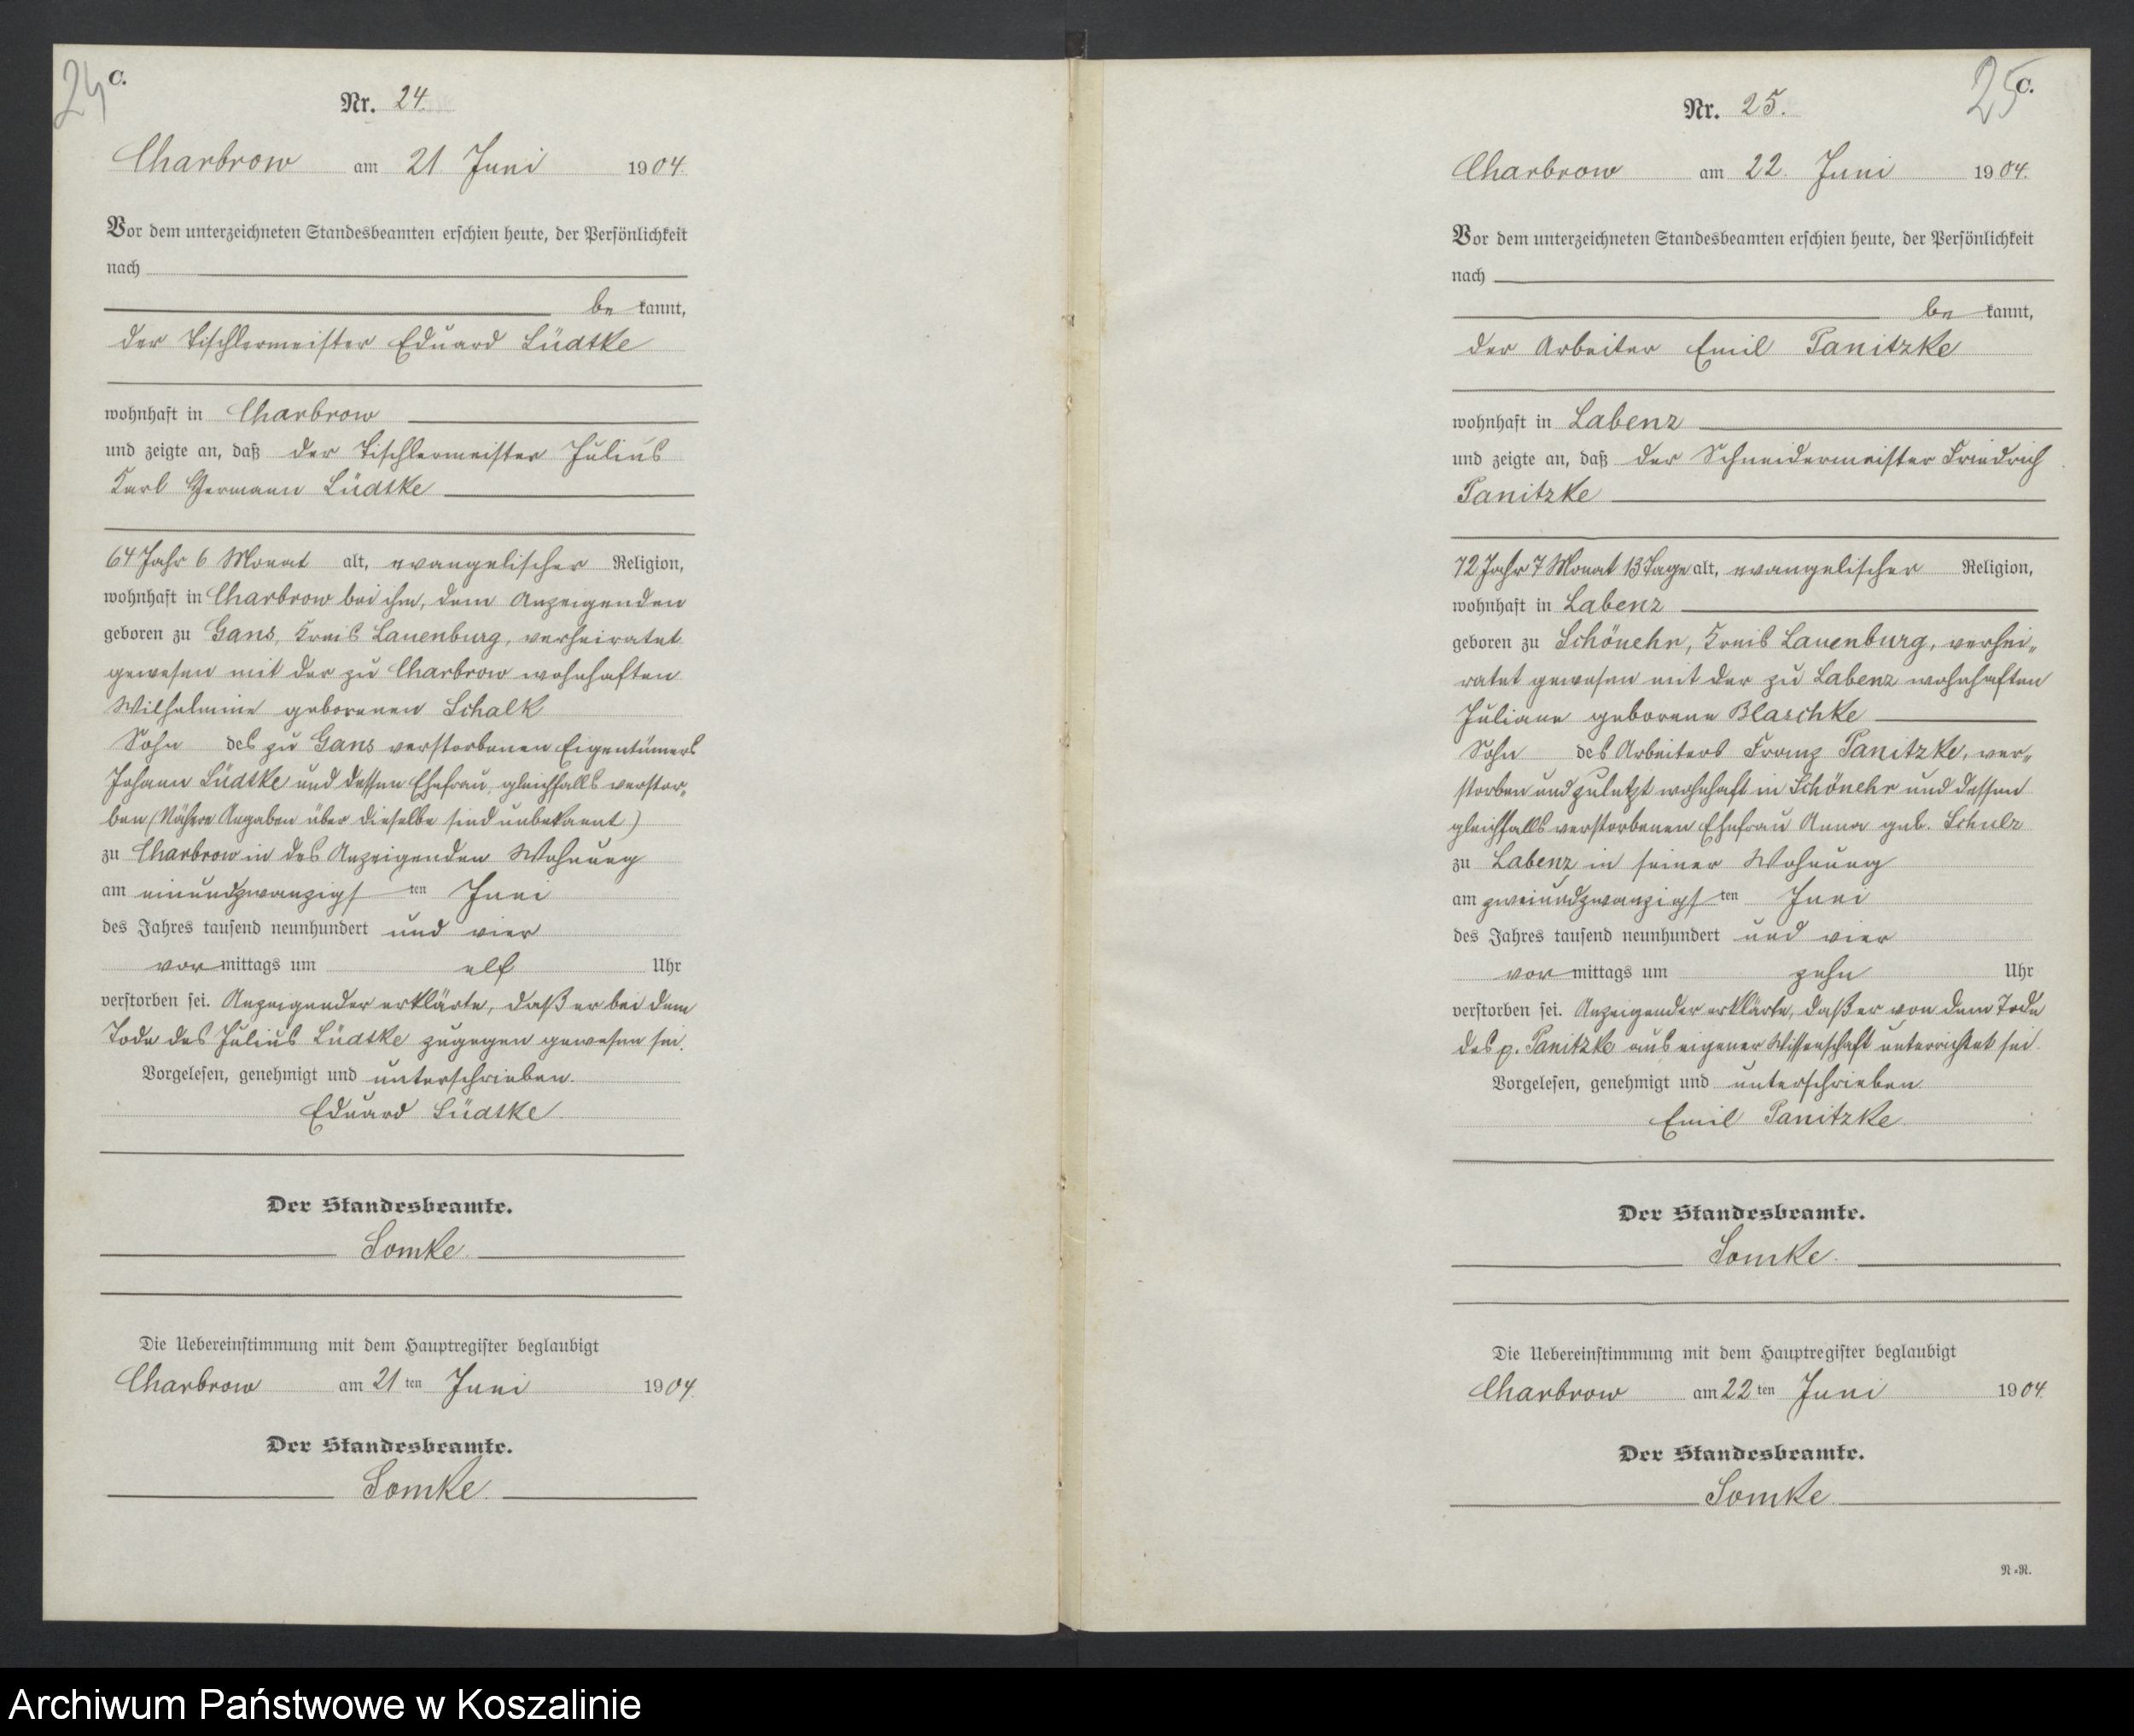 24
C.
Nr. 24.
Charbrow am 21. Juni 1904.
Vor dem unterzeichneten Standesbeamten erschien heute, der Persönlichkeit
nach
be kannt,
der Tischlermeister Eduard Lüdtke
wohnhaft in Charbrow
und zeigte an, daß der Tischlermeister Julius
Karl Hermann Lüdtke
64 Jahr 6 Monat alt, evangelischer Religion,
wohnhaft in Charbrow bei ihm, dem Anzeigenden
geboren zu Gans, Kreis Lauenburg, verheiratet
gewesen mit der zu Charbrow wohnhaften
Wilhelmine geborenen Schalk
Sohn des zu Gans verstorbenen Eigentümers
Johann Lüdtke und dessen Ehefrau, gleichfalls verstor-
ben (Nähere Angaben über dieselbe sind unbekannt)
zu Charbrow in des Anzeigenden Wohnung
am einundzwanzigs ten Juni
des Jahres tausend neunhundert und vier
vor mittags um elf Uhr
verstorben sei. Anzeigender erklärte, daß er bei dem
Tode des Julius Lüdtke zugegen gewesen sei.
Vorgelesen, genehmigt und unterschrieben.
Eduard Lüdtke.
Der Standesbeamte.
Somke.
Die Uebereinstimmung mit dem Hauptregister beglaubigt
Charbrow am 21 ten Juni 1904.
Der Standesbeamte.
Somke.
25
C.
Nr. 25.
Charbrow am 22. Juni 1904.
Vor dem unterzeichneten Standesbeamten erschien heute, der Persönlichkeit
nach
be kannt,
der Arbeiter Emil Panitzke
wohnhaft in Labenz
und zeigte an, daß der Schneidermeister Friedrich
Panitzke
72 Jahr 7 Monat 13 Tage alt, evangelischer Religion,
wohnhaft in Labenz
geboren zu Schönehr, Kreis Lauenburg, verhei-
ratet gewesen mit der zu Labenz wohnhaften
Juliane geborene Blaschke
Sohn des Arbeiters Franz Panitzke, ver-
storben und zuletzt wohnhaft in Schönehr und dessen
gleichfalls verstorbenen Ehefrau Anna geb. Schulz
zu Labenz in seiner Wohnung
am zweiundzwanzigs ten Juni
des Jahres tausend neunhundert und vier
vor mittags um zehn Uhr
verstorben sei. Anzeigender erklärte, daß er von dem Tode
des p. Panitzke aus eigener Wissenschaft unterrichtet sei.
Vorgelesen, genehmigt und unterschrieben.
Emil Panitzke.
Der Standesbeamte.
Somke.
Die Uebereinstimmung mit dem Hauptregister beglaubigt
Charbrow am 22 ten Juni 1904.
Der Standesbeamte.
Somke.
N.-N.
Archiwum Państwowe w Koszalinie